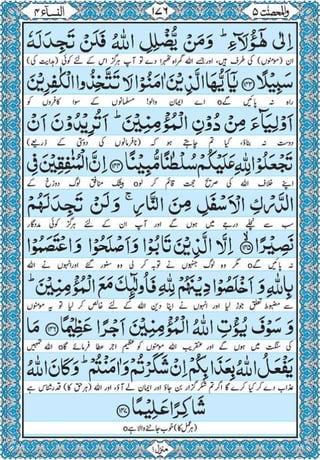 النساء ٤
١٧٦
والمحصنت ٥
اِلٰى هٰۤؤُلَآءِ ؕ وَمَنْ يُّضْلِلِ اللّٰهُ فَلَنْ تَجِدَ لَهٗ
ان (مومنوں) کی طرف ہیں، اور جسے اللہ گمراہ ٹھہرا دے تو آپ ہرگز اس کے لئے کوئی (ہدایت کی)
سَبِيْلًا ﴿۱۴۳﴾ يٰۤاَيُّهَا الَّذِيْنَ اٰمَنُوْا لَا تَتَّخِذُوا الْكٰفِرِيْنَ
راہ نہ پائیں گے o اے ایمان والو! مسلمانوں کے سوا کافروں کو
اَوْلِيَآءَ مِنْ دُوْنِ الْمُؤْمِنِيْنَ ؕ اَتُرِيْدُوْنَ اَنْ
دوست نہ بناؤ، کیا تم چاہتے ہو کہ (نافرمانوں کی دوستی کے ذریعے)
تَجْعَلُوْا لِلّٰهِ عَلَيْكُمْ سُلْطٰنًا مُّبِيْنًا ﴿۱۴۴﴾ اِنَّ الْمُنٰفِقِيْنَ فِى
اپنے خلاف اللہ کی صریح حجت قائم کر لو o بیشک منافق لوگ دوزخ کے
الدَّرْكِ الْاَسْفَلِ مِنَ النَّارِ ۚ وَلَنْ تَجِدَ لَهُمْ
سب سے نچلے درجے میں ہوں گے اور آپ ان کے لئے ہرگز کوئی مددگار
نَصِيْرًا ﴿۱۴۵﴾ اِلَّا الَّذِيْنَ تَابُوْا وَاَصْلَحُوْا وَاعْتَصَمُوْا
نہ پائیں گے o مگر وہ لوگ جنہوں نے توبہ کر لی وہ سنور گئے اور انہوں نے اللہ
بِاللّٰهِ وَاَخْلَصُوْا دِيْنَهُمْ لِلّٰهِ فَاُولٰٓئِكَ مَعَ الْمُؤْمِنِيْنَ ؕ
سے مضبوط تعلق جوڑ لیا اور انہوں نے اپنا دین اللہ کے لئے خالص کر لیا تو یہ مومنوں
وَسَوْفَ يُؤْتِ اللّٰهُ الْمُؤْمِنِيْنَ اَجْرًا عَظِيْمًا ﴿۱۴۶﴾ مَا
کی سنگت میں ہوں گے اور عنقریب اللہ مومنوں کو عظیم اجر عطا فرمائے گا o اللہ تمہیں
يَفْعَلُ اللّٰهُ بِعَذَابِكُمْ اِنْ شَكَرْتُمْ وَاٰمَنْتُمْ ؕ وَكَانَ اللّٰهُ
عذاب دے کر کیا کرے گا اگر تم شکر گزار بن جاؤ اور ایمان لے آؤ، اور اللہ (ہر حق کا) قدر شناس ہے
شَاكِرًا عَلِيْمًا ﴿۱۴۷﴾
(ہر عمل کا) خوب جاننے والا ہے o
منزل ۱